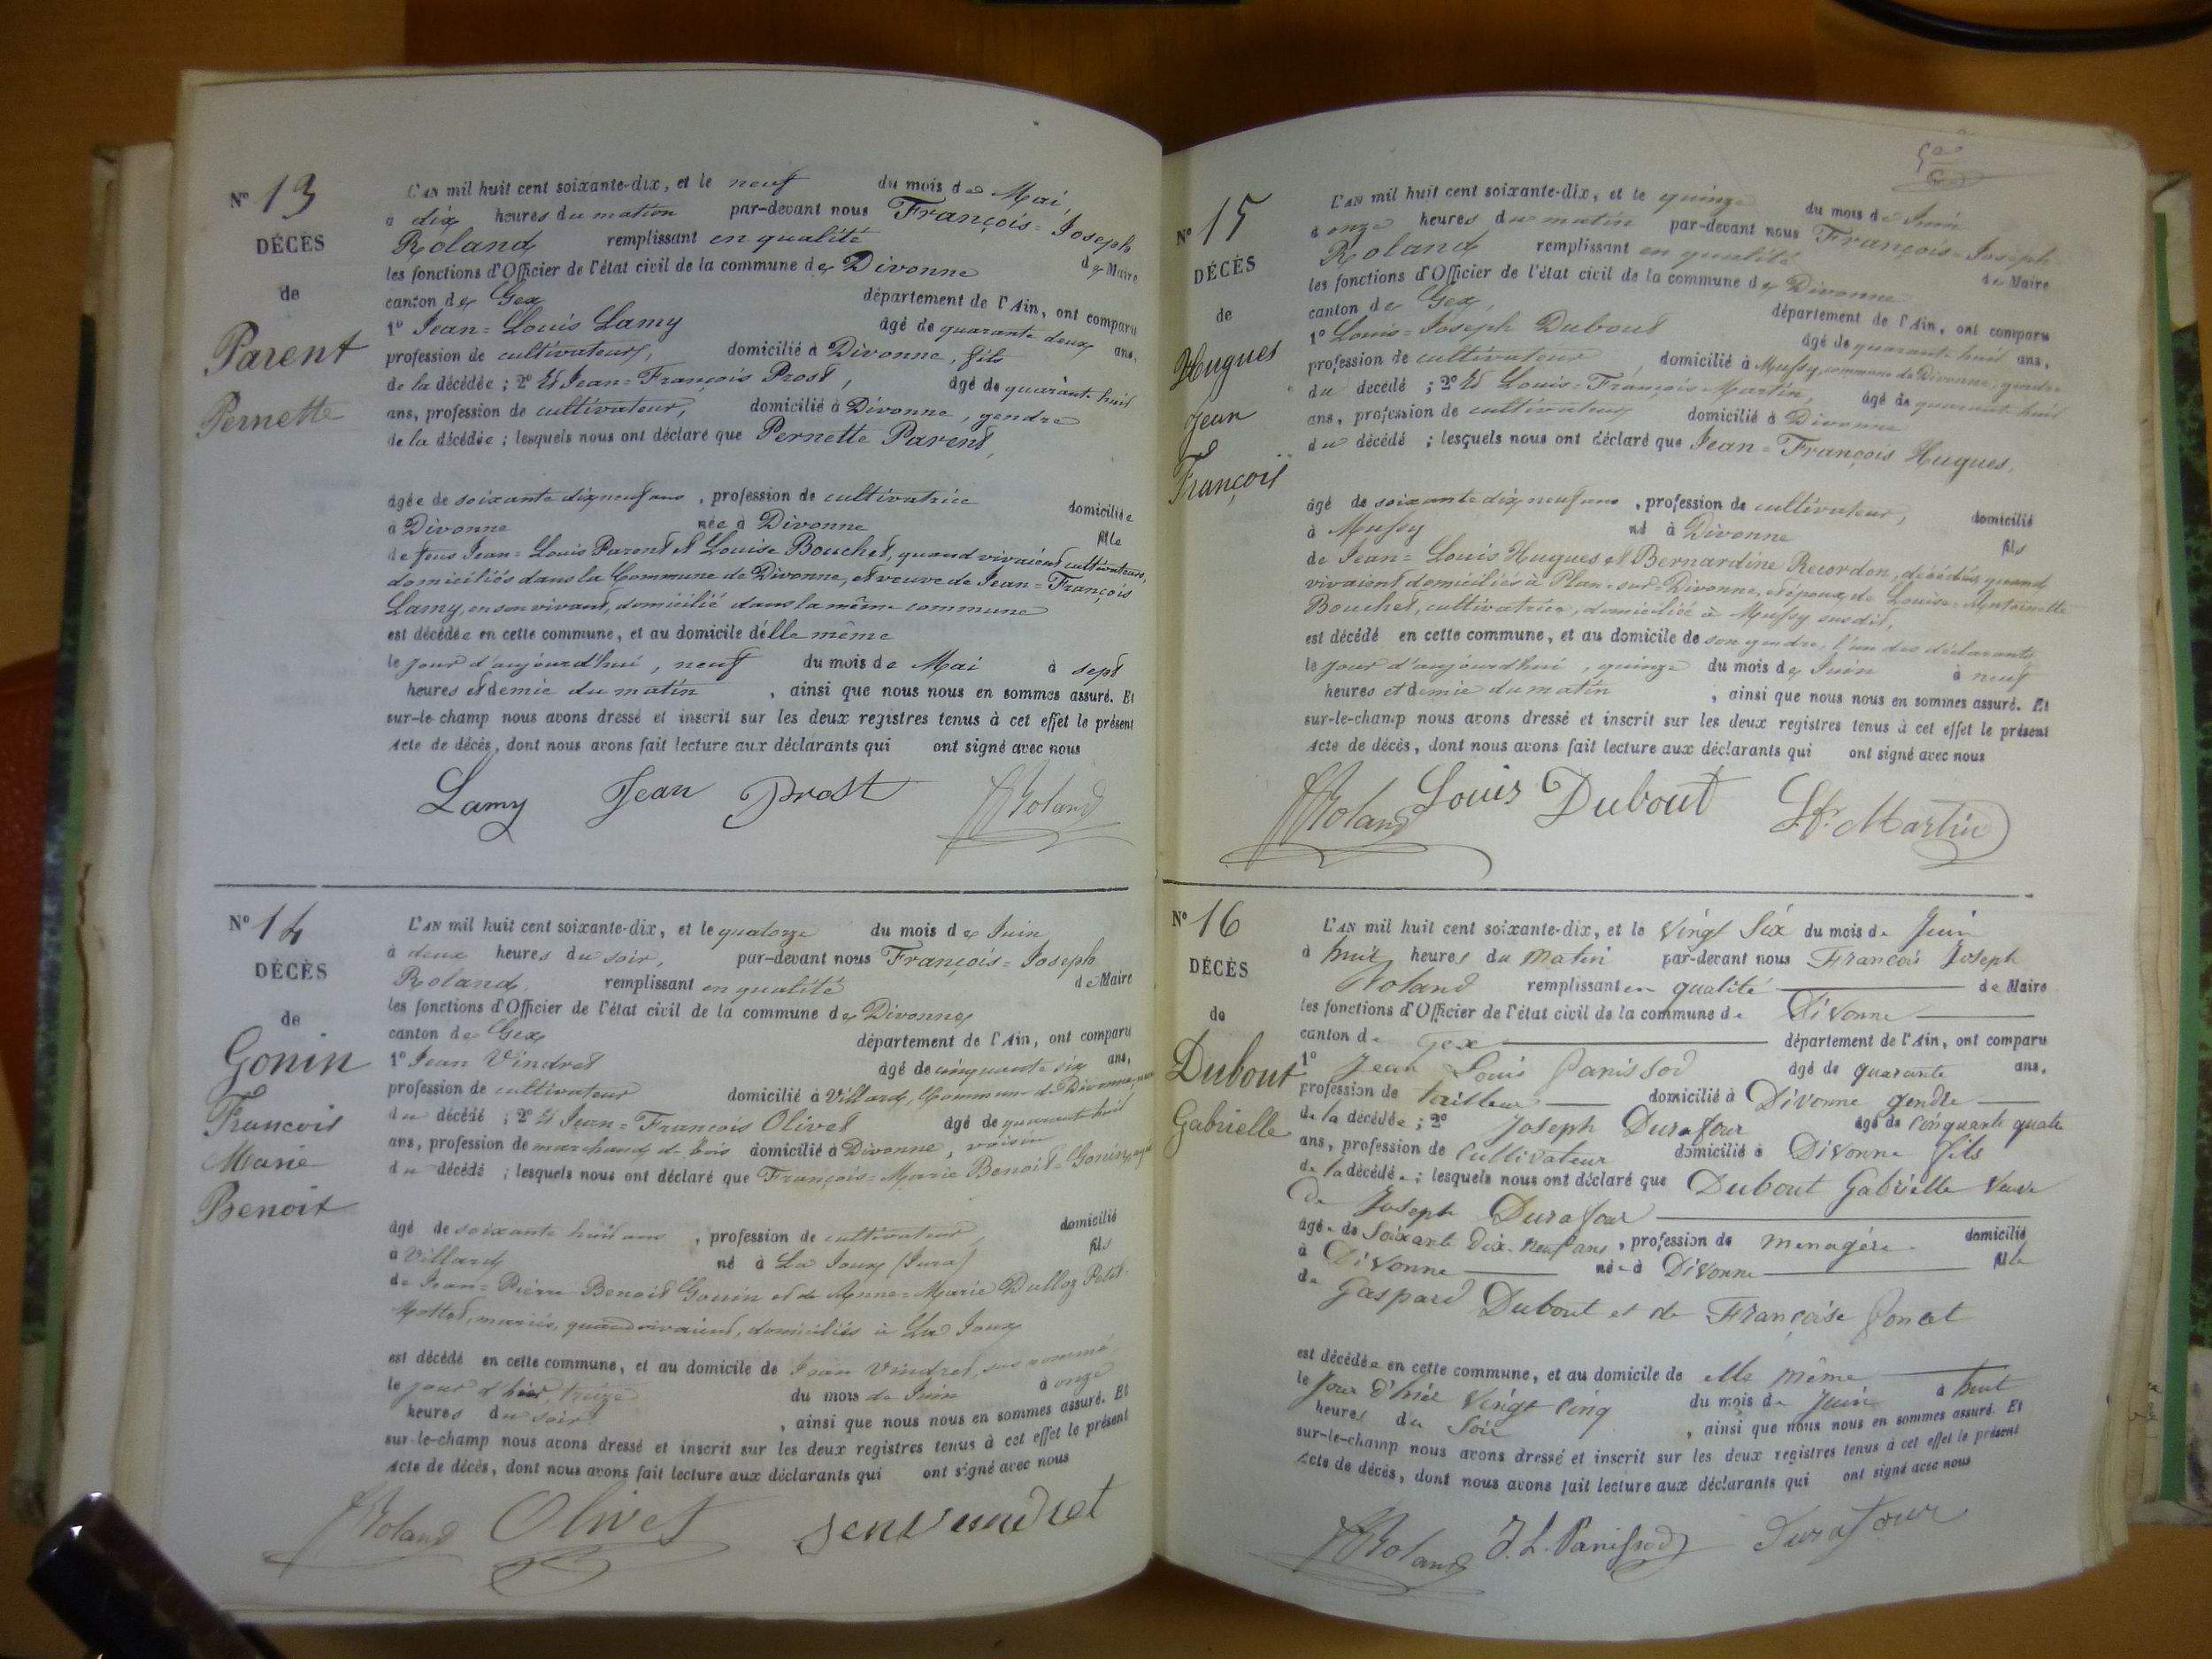 N° 13
DÉCÈS
de
Parent
Pernette
L'AN mil huit cent soixante-dix, et le neuf du mois de Mai,
à dix heures du matin par-devant nous François=Joseph
Roland remplissant en qualité de Maire
les fonctions d'Officier de l'état civil de la commune de Divonne
canton de Gex département de l'Ain, ont comparu
1° Jean=Louis Lamy âgé de quarante deux ans,
profession de cultivateur, domicilié à Divonne, fils
de la décédée ; 2° Et Jean=François Prost, âgé de quarante huit
ans, profession de cultivateur, domicilié à Divonne, gendre
de la décédée ; lesquels nous ont déclaré que Pernette Parent,
âgée de soixante dix neuf ans, profession de cultivatrice domiciliée
à Divonne née à Divonne fille
de feus Jean=Louis Parent et Louise Bouchet, quand vivaient cultivateurs,
domiciliés dans la Commune de Divonne, et veuve de Jean=François
Lamy, en son vivant, domicilié dans la même commune
est décédée en cette commune, et au domicile d'elle même
le jour d'aujourd'hui, neuf du mois de Mai à sept
heures et demie du matin, ainsi que nous nous en sommes assuré. Et
sur-le-champ nous avons dressé et inscrit sur les deux registres tenus à cet effet le présent
Acte de décès, dont nous avons fait lecture aux déclarants qui ont signé avec nous
Lamy Jean Prost Roland
N° 14
DÉCÈS
de
Gonin
François
Marie
Benoit
L'AN mil huit cent soixante-dix, et le quatorze du mois de Juin
à deux heures du soir, par-devant nous François=Joseph
Roland remplissant en qualité de Maire
les fonctions d'Officier de l'état civil de la commune de Divonne
canton de Gex département de l'Ain, ont comparu
1° Jean Vindret âgé de cinquante six ans,
profession de cultivateur domicilié à Villard, Commune de Divonne,
du décédé ; 2° Et Jean=François Olivet âgé de quarante huit
ans, profession de marchand de bois domicilié à Divonne, voisin
du décédé ; lesquels nous ont déclaré que François=Marie Benoit=Gonin,
âgé de soixante huit ans, profession de cultivateur, domicilié
à Villard né à La Joux (Jura) fils
de Jean=Pierre Benoit Gonin et de Anne=Marie Dalloz Petit
Mottet, mariés, quand vivaient, domiciliés à La Joux
est décédé en cette commune, et au domicile de Jean Vindret, sus nommé
le jour d'hier, treize du mois de Juin à onze
heures du soir, ainsi que nous nous en sommes assuré. Et
sur-le-champ nous avons dressé et inscrit sur les deux registres tenus à cet effet le présent
Acte de décès, dont nous avons fait lecture aux déclarants qui ont signé avec nous
Roland Olivet
N° 15
DÉCÈS
de
Hugues
Jean
François
L'AN mil huit cent soixante-dix, et le quinze du mois de Juin
à onze heures du matin par-devant nous François=Joseph
Roland remplissant en qualité de Maire
les fonctions d'Officier de l'état civil de la commune de Divonne
canton de Gex, département de l'Ain, ont comparu
1° Louis=Joseph Dubout âgé de quarante huit ans,
profession de cultivateur, domicilié à Mussy, commune de Divonne, gendre
du décédé ; 2° Et Louis=François Martin, âgé de quarante huit
ans, profession de cultivateur domicilié à Divonne
du décédé ; lesquels nous ont déclaré que Jean=François Hugues,
âgé de soixante dix neuf ans, profession de cultivateur, domicilié
à Mussy né à Divonne fils
de Jean=Louis Hugues et Bernardine Recordon, décédés, quand
vivaient domiciliés à Plan-sur-Divonne, et époux de Louise=Antoinette
Bouchet, cultivatrice, domiciliée à Mussy susdit,
est décédé en cette commune, et au domicile de son gendre, l'un des déclarants,
le jour d'aujourd'hui, quinze du mois de Juin à neuf
heures et demie du matin, ainsi que nous nous en sommes assuré. Et
sur-le-champ nous avons dressé et inscrit sur les deux registres tenus à cet effet le présent
Acte de décès, dont nous avons fait lecture aux déclarants qui ont signé avec nous
Roland Louis Dubout L. F. Martin
N° 16
DÉCÈS
de
Dubout
Gabrielle
L'AN mil huit cent soixante-dix, et le Vingt Six du mois de Juin
à huit heures du matin par-devant nous François Joseph
Roland remplissant en qualité de Maire
les fonctions d'Officier de l'état civil de la commune de Divonne
canton de Gex département de l'Ain, ont comparu
1° Jean Louis Panissod âgé de quarante ans,
profession de tailleur domicilié à Divonne gendre
de la décédée ; 2° Joseph Durafour âgé de cinquante quatre
ans, profession de Cultivateur domicilié à Divonne fils
de la décédée ; lesquels nous ont déclaré que Dubout Gabrielle Veuve
de Joseph Durafour
âgée de Soixante Dix-Neuf ans, profession de menagère domicilié
à Divonne née à Divonne fille
de Gaspard Dubout et de Françoise Poncet
est décédée en cette commune, et au domicile de elle même
le Jour d'hier Vingt cinq du mois de Juin à huit
heures du Soir, ainsi que nous nous en sommes assuré. Et
sur-le-champ nous avons dressé et inscrit sur les deux registres tenus à cet effet le présent
Acte de décès, dont nous avons fait lecture aux déclarants qui ont signé avec nous
Roland J. L. Panissod Durafour